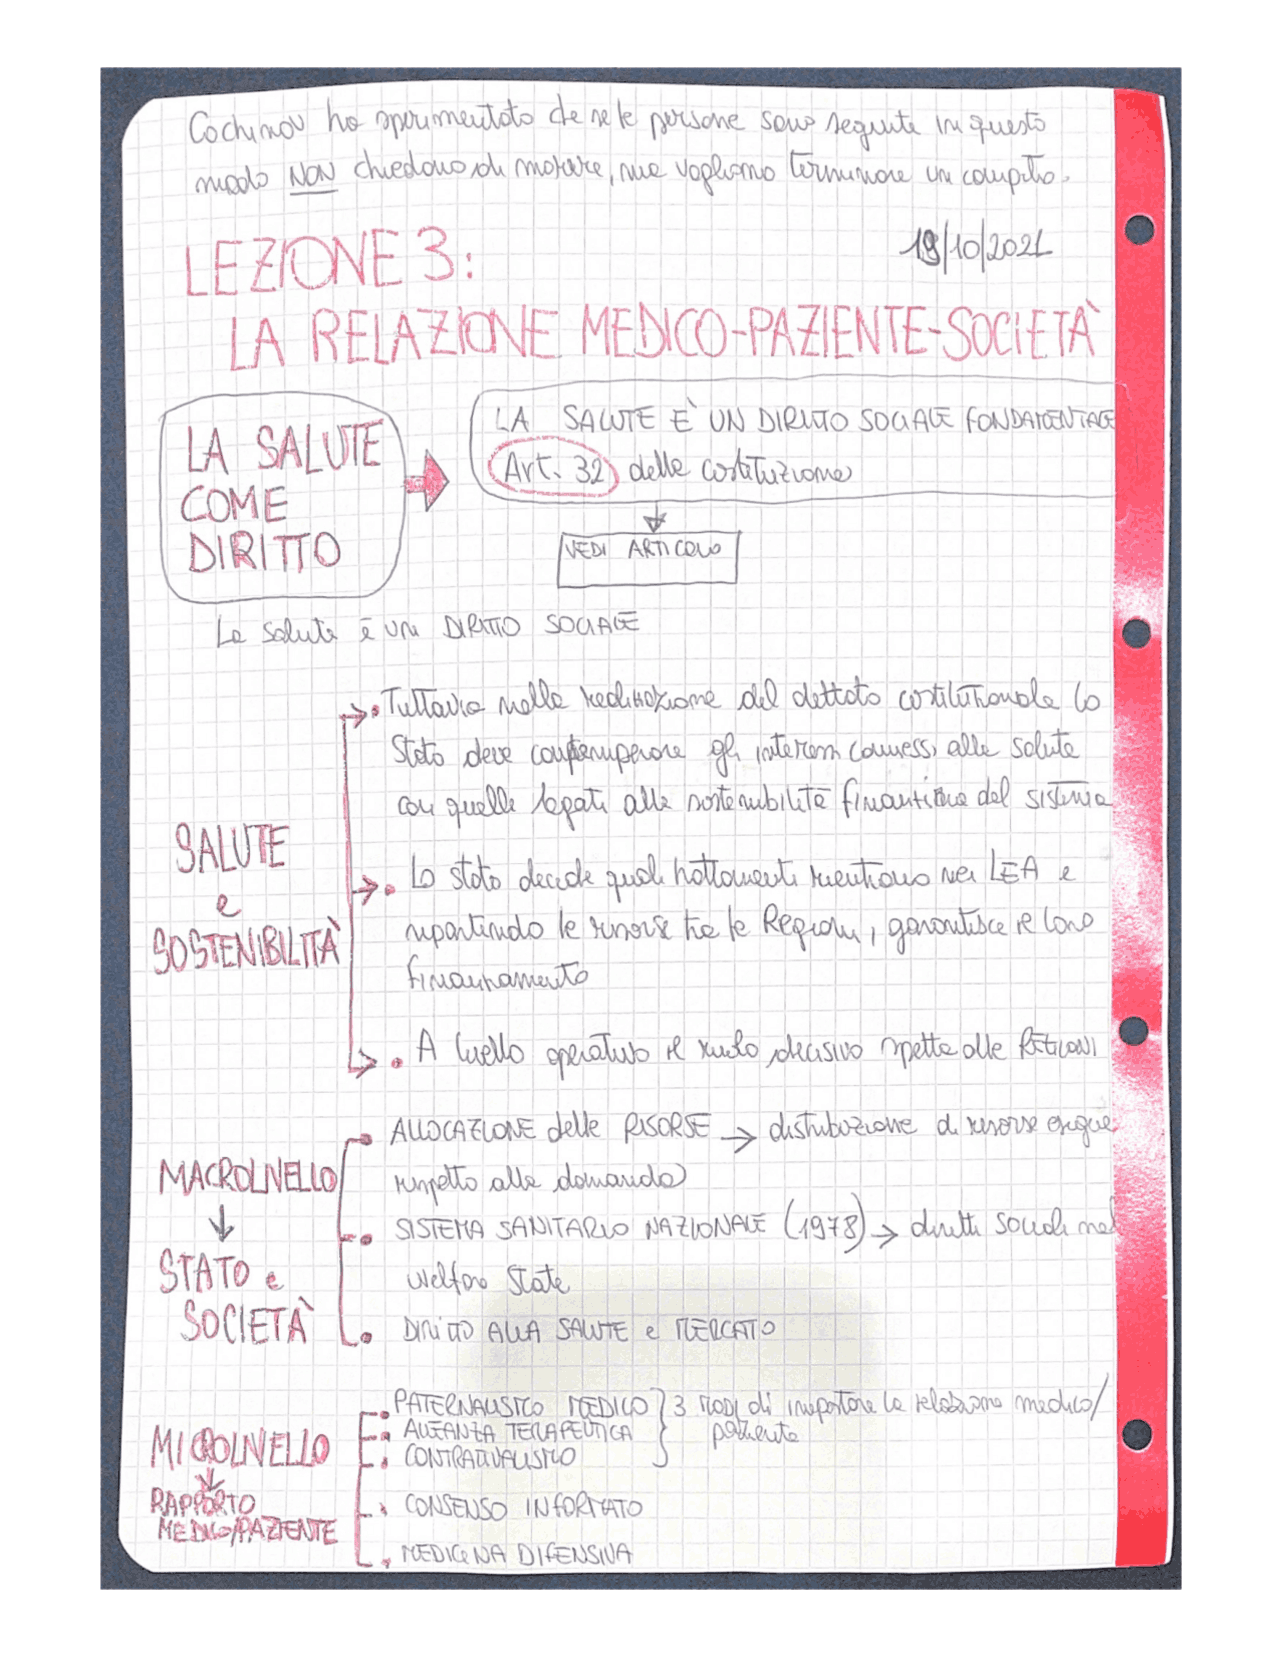 Cochinov ho sperimentato che se le persone sono seguite in questo
modo NON chiedono di morire, ma vogliono terminare un compito.
19/10/2021
LEZIONE 3:
LA RELAZIONE MEDICO-PAZIENTE-SOCIETÀ
LA SALUTE
COME
DIRITTO
LA SALUTE È UN DIRITTO SOCIALE FONDAMENTALE
Art. 32 della costituzione
VEDI ARTICOLO
La salute è un DIRITTO SOCIALE
SALUTE
e
SOSTENIBILITÀ
• Tuttavia nella realizzazione del dettato costituzionale lo
Stato deve contemperare gli interessi connessi alla salute
con quelli legati alla sostenibilità finanziaria del sistema
• Lo stato decide quali trattamenti rientrano nei LEA e
ripartindo le risorse tra le Regioni, garantisce il loro
finanziamento
• A livello operativo il ruolo decisivo spetta alle REGIONI
MACROLIVELLO
↓
STATO e
SOCIETÀ
• ALLOCAZIONE delle RISORSE → distribuzione di risorse esigue
rispetto alla domanda
• SISTEMA SANITARIO NAZIONALE (1978) → diritti sociali nel
welfare State
• DIRITTO ALLA SALUTE e MERCATO
MICROLIVELLO
↓
RAPPORTO
MEDICO/PAZIENTE
• PATERNALISTICO MEDICO
• ALLEANZA TERAPEUTICA
• CONTRATTUALISTICO
3 MODI di impostare la relazione medico/
paziente
• CONSENSO INFORMATO
• MEDICINA DIFENSIVA